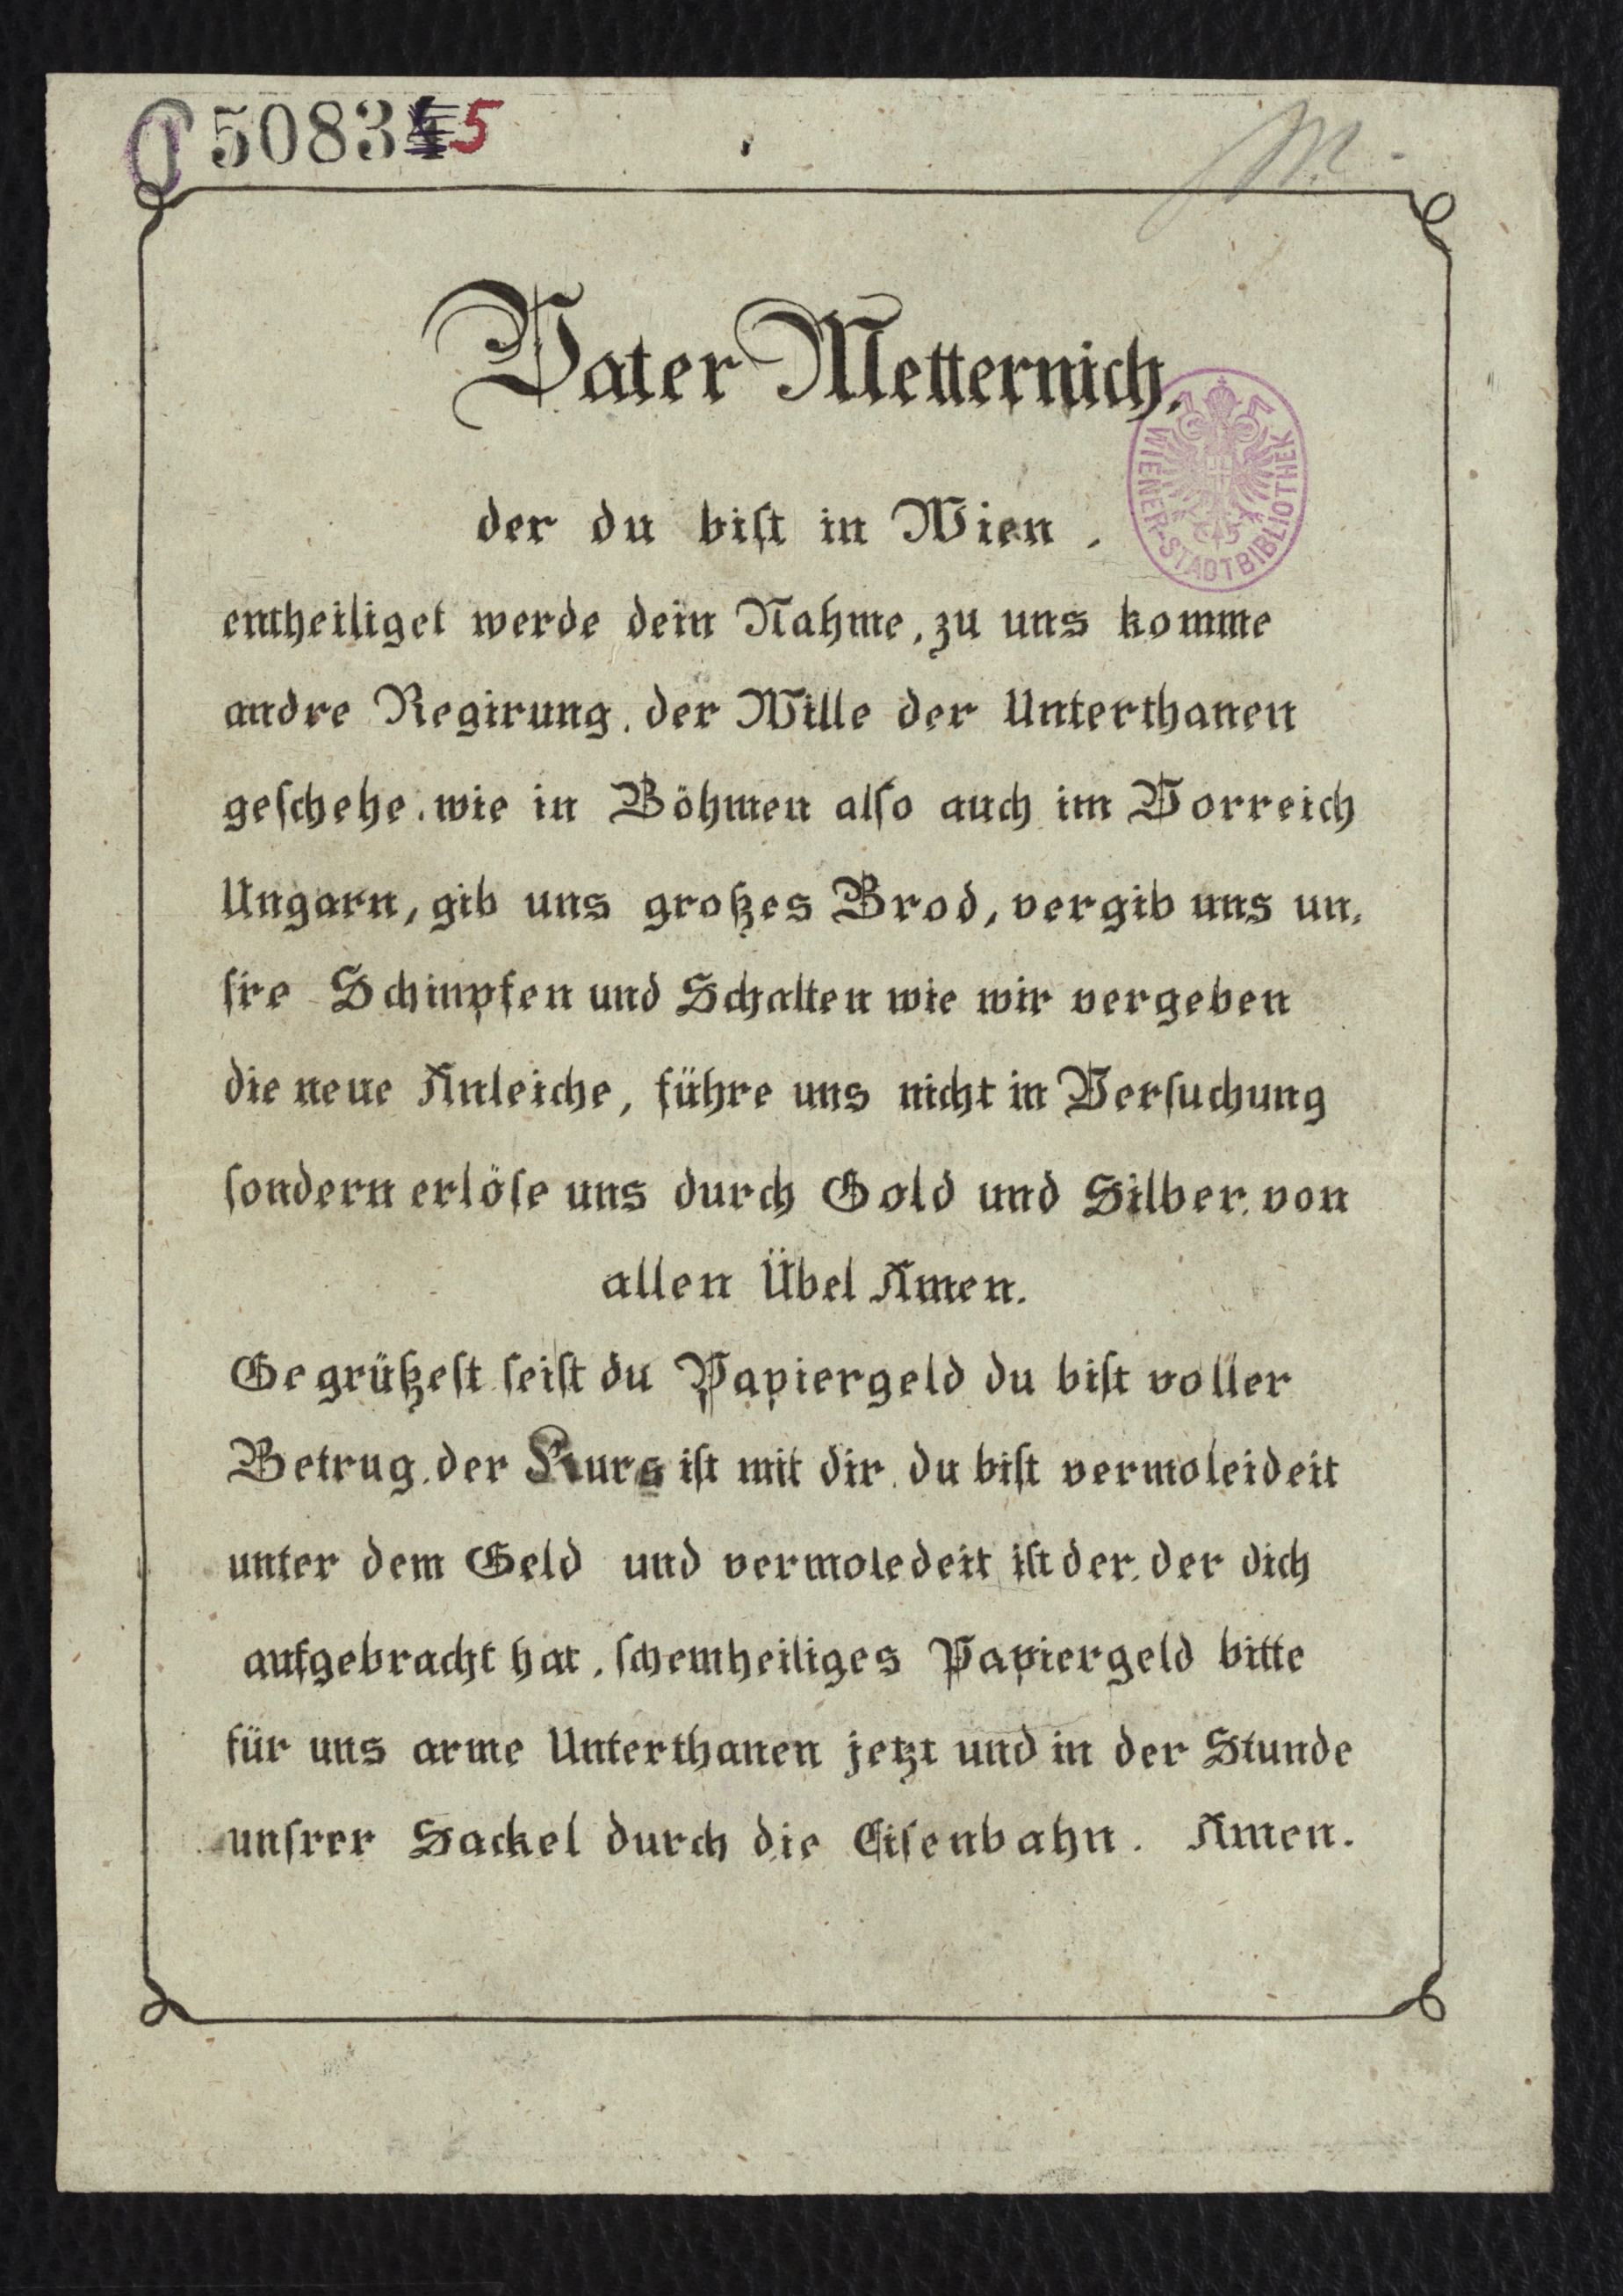 50835
M.
Vater Metternich,
WIENER-STADTBIBLIOTHEK
der du biſt in Wien,
entheiliget werde dein Nahme, zu uns komme
andre Regirung, der Wille der Unterthanen
geſchehe, wie in Böhmen alſo auch im Vorreich
Ungarn, gib uns großes Brod, vergib uns un,
ſre Schimpfen und Schalten wie wir vergeben
die neue Anleiche, führe uns nicht in Verſuchung
ſondern erlöſe uns durch Gold und Silber, von
allen Übel Amen.
Gegrüßeſt ſeiſt du Papiergeld du biſt voller
Betrug, der Kurs iſt mit dir, du biſt vermoleideit
unter dem Geld und vermoledeit iſt der, der dich
aufgebracht hat, ſchemheiliges Papiergeld bitte
für uns arme Unterthanen jetzt und in der Stunde
unſrer Sackel durch die Eiſenbahn. Amen.